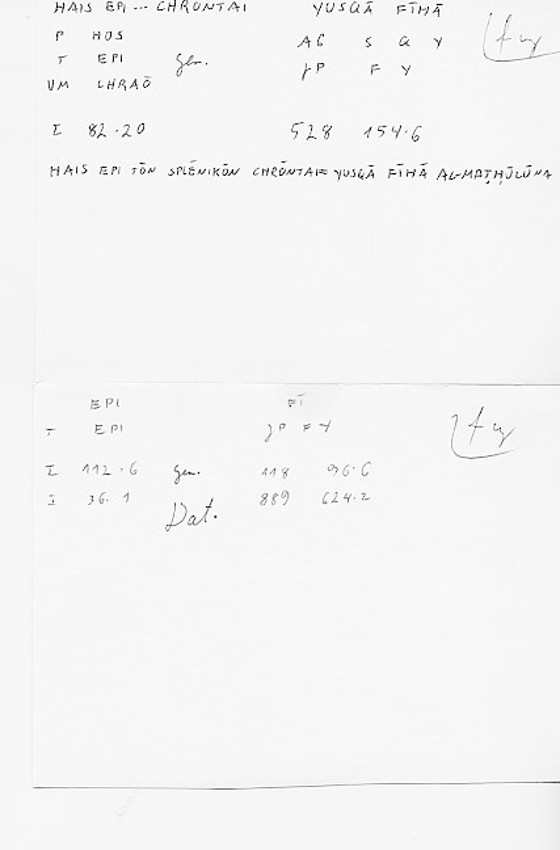 HAIS EPI ... CHRŌNTAI YUSQĀ FĪHĀ
P HOS AG S Q Y
T EPI Gen. fy
ȷP F Y
UM CHRAŌ
I 82.20 528 154.6
HAIS EPI TŌN SPLĒNIKŌN CHRŌNTAI= YUSQĀ FĪHĀ AL-MAṬḤŪLŪNA
EPI FĪ
T EPI ȷP F Y fy
I 112.6 Gen. 118 96.6
I 36.1 Dat. 889 624.2